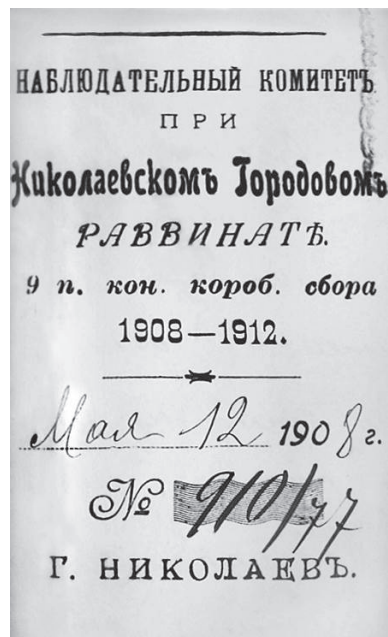 НАБЛЮДАТЕЛЬНЫЙ КОМИТЕТЪ
ПРИ
Николаевскомъ Городовомъ
РАВВИНАТѢ.
9 п. кон. короб. сбора
1908—1912.
Мая 12 1908 г.
№ 910/77
Г. НИКОЛАЕВЪ.